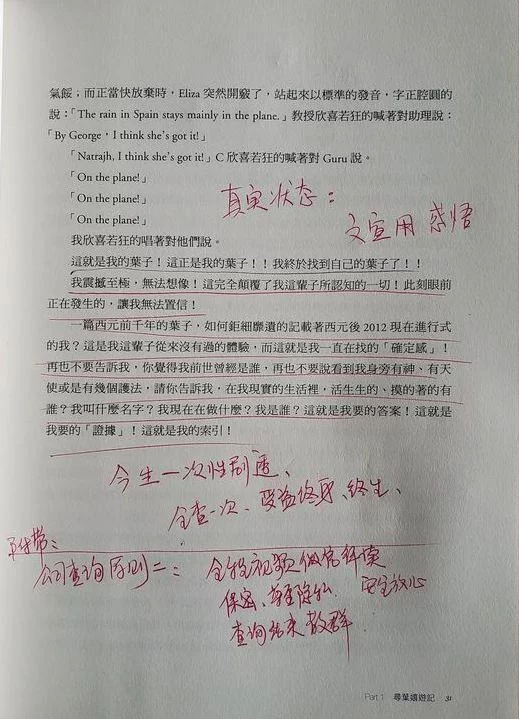 氣餒；而正當快放棄時，Eliza 突然開竅了，站起來以標準的發音，字正腔圓的
說：「The rain in Spain stays mainly in the plane.」教授欣喜若狂的喊著對助理說：
「By George，I think she's got it!」
「Natrajh, I think she's got it!」C 欣喜若狂的喊著對 Guru 說。
「On the plane!」
「On the plane!」
「On the plane!」
真实状态：
文宣用 感悟
我欣喜若狂的唱著對他們說。
這就是我的葉子！這正是我的葉子！！我終於找到自己的葉子了！！
我震撼至極，無法想像！這完全顛覆了我這輩子所認知的一切！此刻眼前
正在發生的，讓我無法置信！
一篇西元前千年的葉子，如何鉅細靡遺的記載著西元後 2012 現在進行式
的我？這是我這輩子從來沒有過的體驗，而這就是我一直在找的「確定感」！
再也不要告訴我，你覺得我前世曾經是誰，再也不要說看到我身旁有神、有天
使或是有幾個護法，請你告訴我，在我現實的生活裡，活生生的、摸的著的有
誰？我叫什麼名字？我現在在做什麼？我是誰？這就是我要的答案！這就是
我要的「證據」！這就是我的索引！
今生一次性剧透、
全查一次、受益终身、终生、
公司查询原则二：全程视频做
保密、 安全放心
查询结束散群
Part 1 尋葉嬉遊記 31